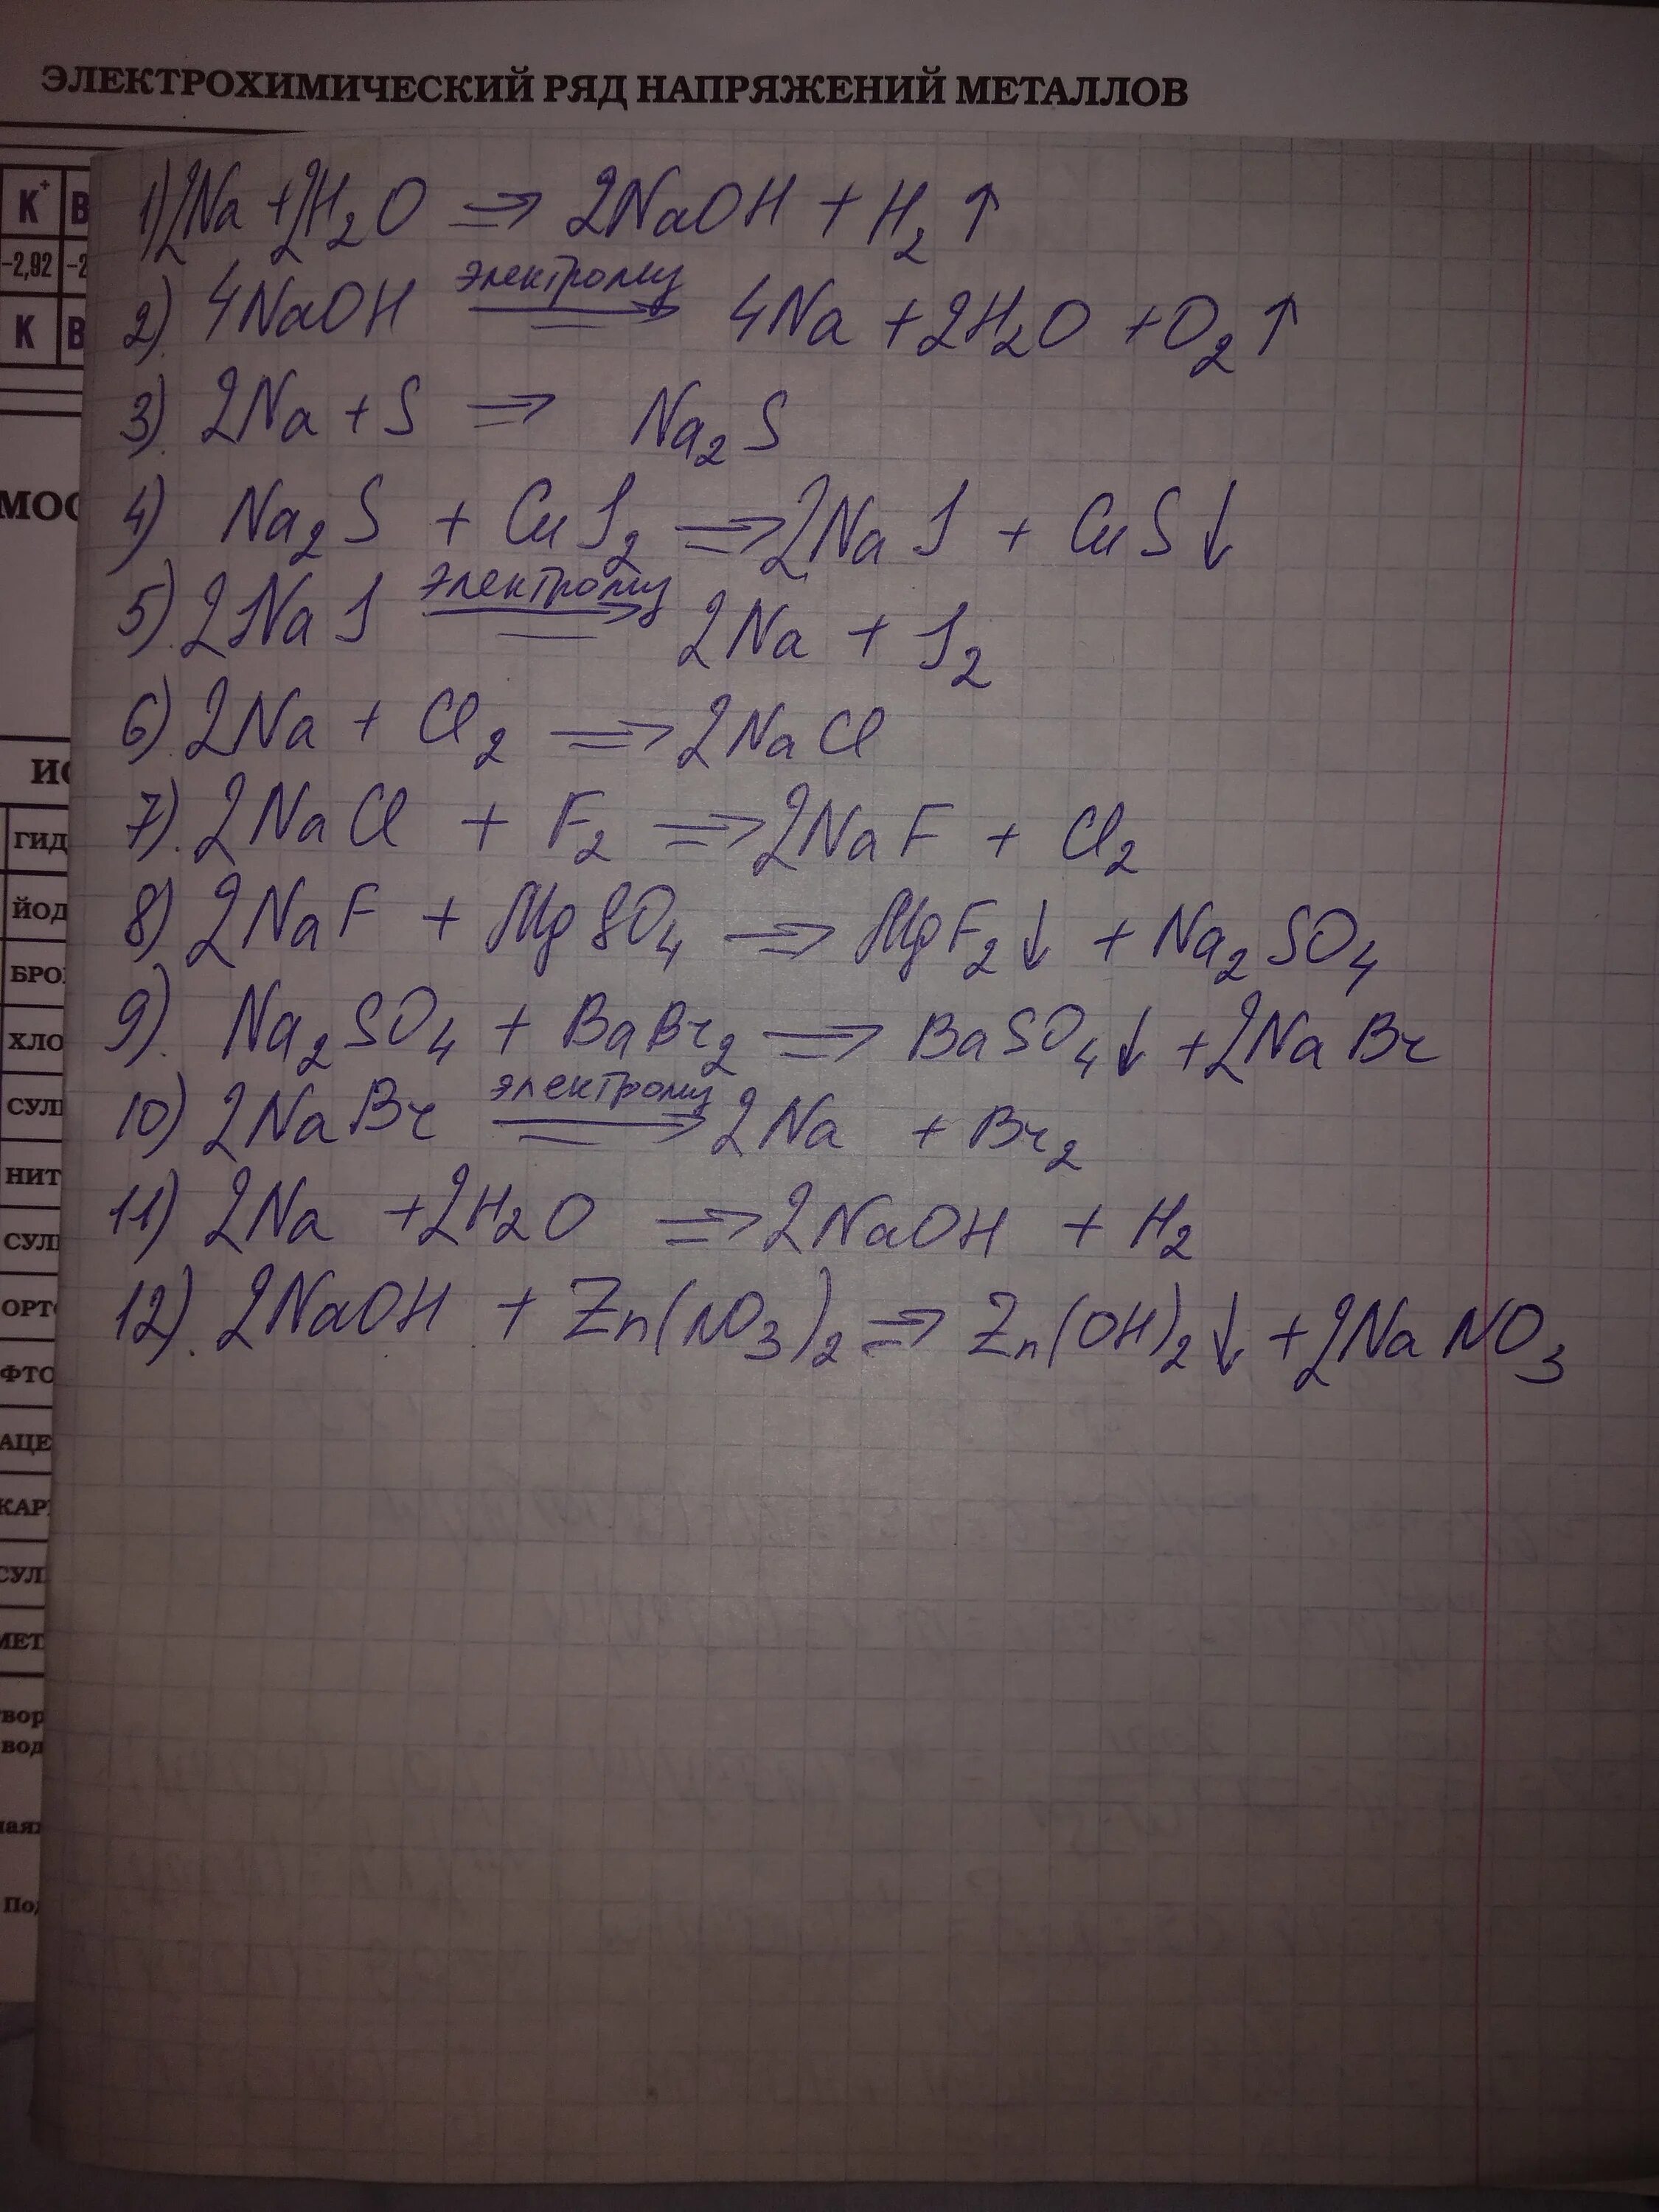 ЭЛЕКТРОХИМИЧЕСКИЙ РЯД НАПРЯЖЕНИЙ МЕТАЛЛОВ
K⁺
-2,92
K
1) 2Na + 2H₂O ⇒ 2NaOH + H₂ ↑
2) 4NaOH электролиз ⇒ 4Na + 2H₂O + O₂ ↑
3) 2Na + S ⇒ Na₂S
4) Na₂S + CuI₂ ⇒ 2NaI + CuS↓
5) 2NaI электролиз ⇒ 2Na + I₂
6) 2Na + Cl₂ ⇒ 2NaCl
7) 2NaCl + F₂ ⇒ 2NaF + Cl₂
8) 2NaF + MgSO₄ ⇒ MgF₂↓ + Na₂SO₄
9) Na₂SO₄ + BaBr₂ ⇒ BaSO₄↓ + 2NaBr
10) 2NaBr электролиз ⇒ 2Na + Br₂
11) 2Na + 2H₂O ⇒ 2NaOH + H₂
12) 2NaOH + Zn(NO₃)₂ ⇒ Zn(OH)₂↓ + 2NaNO₃